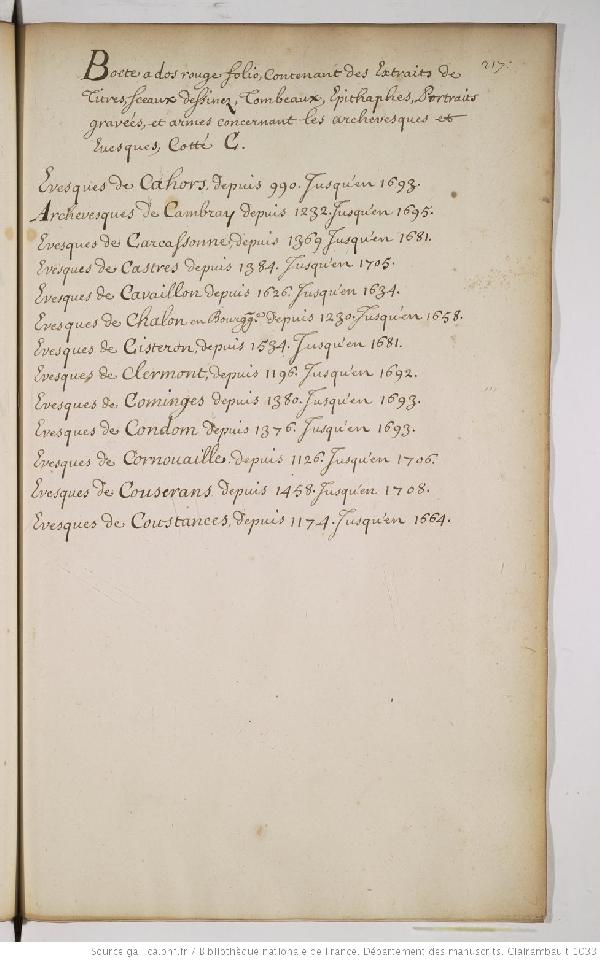 217.
Boete a dos rouge folio, Contenant des Extraits de
Titres, sceaux dessinez, Tombeaux, Epithaphes, Portraits
gravées, et armes concernant les archevesques et
Evesques, Cotté C.
Evesques de Cahors, depuis 990. Jusqu'en 1693.
Archevesques de Cambray depuis 1232. Jusqu'en 1695.
Evesques de Carcassonne, depuis 1369 Jusqu'en 1681.
Evesques de Castres depuis 1384. Jusqu'en 1705.
Evesques de Cavaillon depuis 1626. Jusqu'en 1634.
Evesques de Chalon en Bourgg.e depuis 1230. Jusqu'en 1658.
Evesques de Cisteron, depuis 1534. Jusqu'en 1681.
Evesques de Clermont, depuis 1196. Jusqu'en 1692.
Evesques de Cominges depuis 1380. Jusqu'en 1693.
Evesques de Condom depuis 1376. Jusqu'en 1693.
Evesques de Cornouaille depuis 1126. Jusqu'en 1706.
Evesques de Couserans depuis 1458. Jusqu'en 1708.
Evesques de Coustances, depuis 1174. Jusqu'en 1664.
Source gallica.bnf.fr / Bibliothèque nationale de France. Département des manuscrits. Clairambault 1033